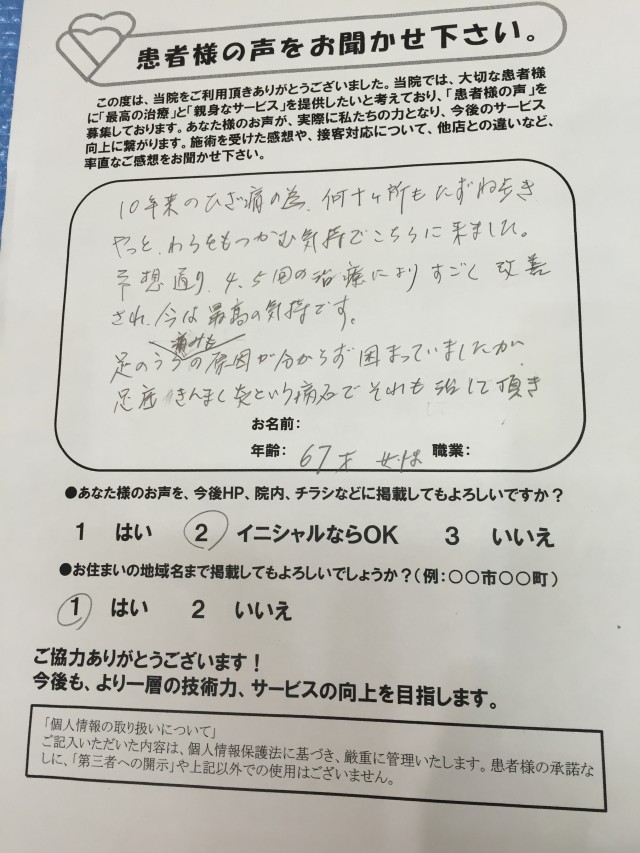 患者様の声をお聞かせ下さい。
この度は、当院をご利用頂きありがとうございました。当院では、大切な患者様
に「最高の治療」と「親身なサービス」を提供したいと考えており、「患者様の声」を
募集しております。あなた様のお声が、実際に私たちの力となり、今後のサービス
向上に繋がります。施術を受けた感想や、接客対応について、他店との違いなど、
率直なご感想をお聞かせ下さい。
10年来のひざ痛の為、何十ヶ所もたずね歩き
やっと、わらをもつかむ気持でこちらに来ました。
予想通り、4、5回の治療によりすごく改善
され、今は最高の気持です。
痛みも
足のうらの原因が分からず困まっていましたが、
足底きんまく炎という病名でそれも治して頂き
お名前:
年齢: 67才 女性 職業:
●あなた様のお声を、今後HP、院内、チラシなどに掲載してもよろしいですか？
1 はい 2 イニシャルならOK 3 いいえ
●お住まいの地域名まで掲載してもよろしいでしょうか？(例:○○市○○町)
1 はい 2 いいえ
ご協力ありがとうございます！
今後も、より一層の技術力、サービスの向上を目指します。
「個人情報の取り扱いについて」
ご記入いただいた内容は、個人情報保護法に基づき、厳重に管理いたします。患者様の承諾な
しに、「第三者への開示」や上記以外での使用はございません。